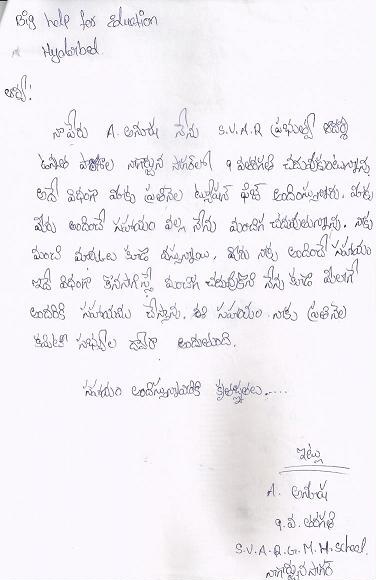 Big help for Education
Hyderabad.
ఆర్య!
నా పేరు A. అనూష నేను S.V.A.R ప్రభుత్వ ఆదర్శ
ఉన్నత పాఠశాల నాగార్జున సాగర్‌లో 9 వతరగతి చదువుకుంటున్నాను
అదే విధంగా మాకు ప్రతినెల ట్యూషన్ ఫీజు అందిస్తున్నారు. మాకు
మీరు అందించే సహాయం వల్ల నేను మంచిగ చదువుతున్నాను. నాకు
మంచి మార్కులు కూడా వస్తున్నాయి. మీరు నాకు అందించే సహాయం
ఇదే విధంగా కొనసాగిస్తే మంచిగ చదువుకొని నేను కూడా మీలాగే
అందరికి సహాయము చేస్తాను. ఈ సహాయం నాకు ప్రతినెల
కమిటీ సభ్యుల ద్వారా అందుతుంది.
సహాయం అందిస్తున్నవారికి కృతజ్ఞతలు.....
ఇట్లు
A. అనూష
9. వ. తరగతి
S.V.A.R.G.M.H.school.
నాగార్జున సాగర్